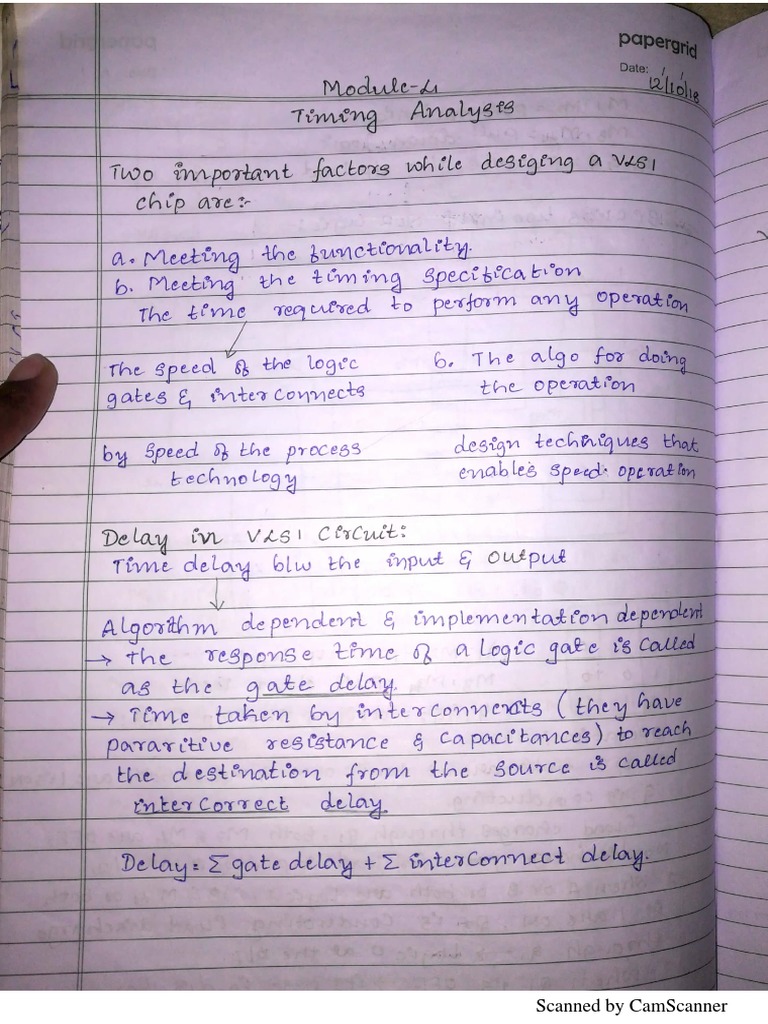 papergrid
Date: / /
12/10/18
Module-4
Timing Analysis
Two important factors while desiging a VLSI
chip are:-
a. Meeting the functionality.
b. Meeting the timing specification
The time required to perform any operation
The speed of the logic
gates & interconnects
b. The algo for doing
the operation
by speed of the process
technology
design techniques that
enables speed operation
Delay in VLSI Circuit:
Time delay b/w the input & output
Algorithm dependent & implementation dependent
→ The response time of a logic gate is called
as the gate delay.
→ Time taken by interconnects (they have
pararitive resistance & capacitances) to reach
the destination from the source is called
inter correct delay.
Delay = Σ gate delay + Σ interconnect delay.
Scanned by CamScanner